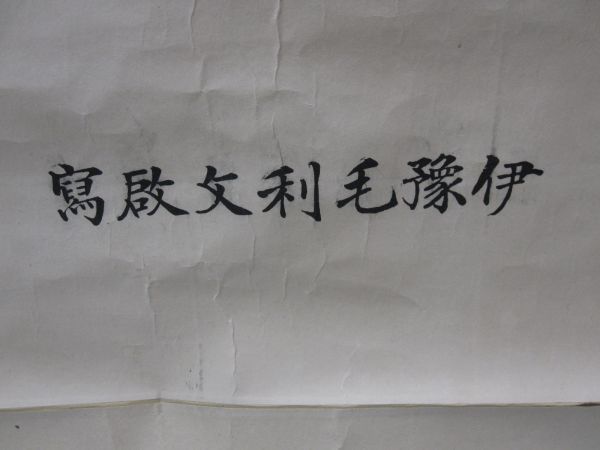 伊豫毛利文啟寫